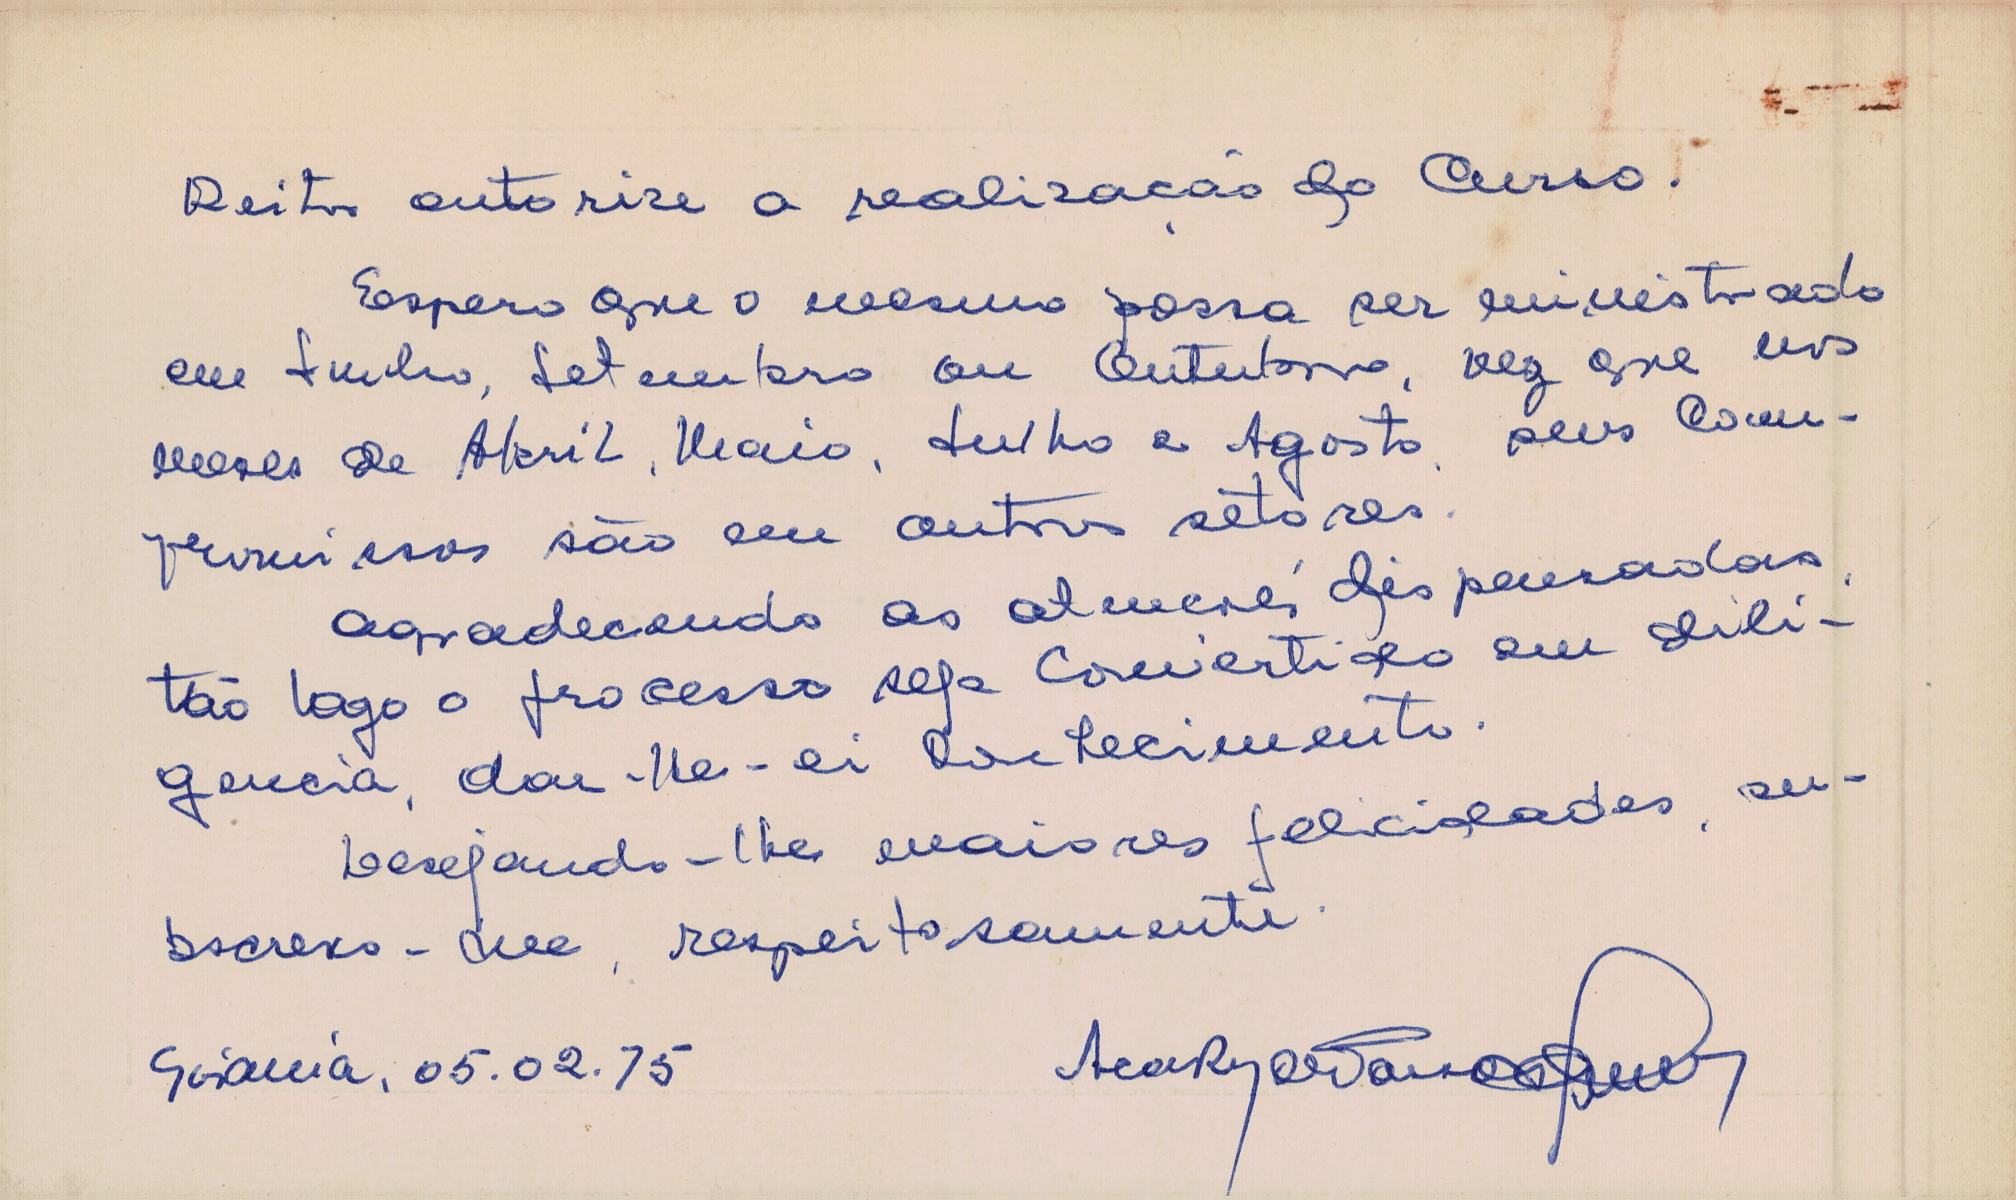 Reitor autorize a realização do Curso.
Espero que o mesmo possa ser ministrado
em Junho, Setembro ou Outubro, vez que nos
meses de Abril, Maio, Julho e Agosto, seus Com-
promissos são em outros setores.
Agradecendo as atenções dispensadas,
tão logo o processo seja Convertido em dili-
gencia, dar-lhe-ei Conhecimento.
Desejando-lhe maiores felicidades, su-
bscrevo-me, respeitosamente.
Goiania, 05.02.75